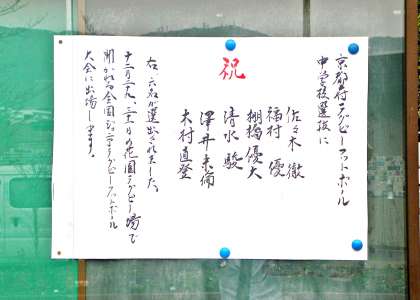 祝
京都府ラグビーフットボール
中学校選抜に
佐々木 徹
福村 優
棚橋優大
清水 駿
澤井未侑
木村直登
右、六名が選出されました。
十二月二十九、三十日の花園ラグビー場で
開かれる全国ジュニアラグビーフットボール
大会に出場します。